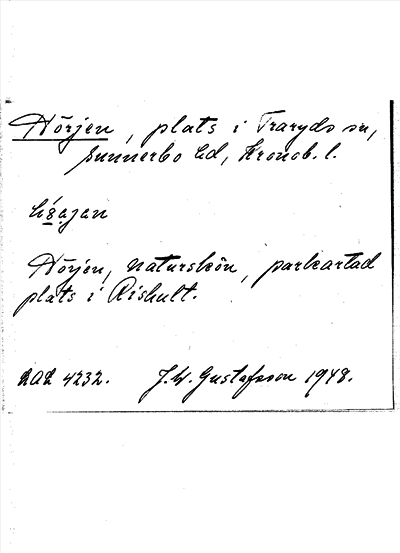 Hörjen, plats i Traryds sn,
Sunnerbo hd, Kronob. l.
Hörjen, naturskön, parkartad
plats i Rishult.
4232. J.W. Gustafsson 1948.